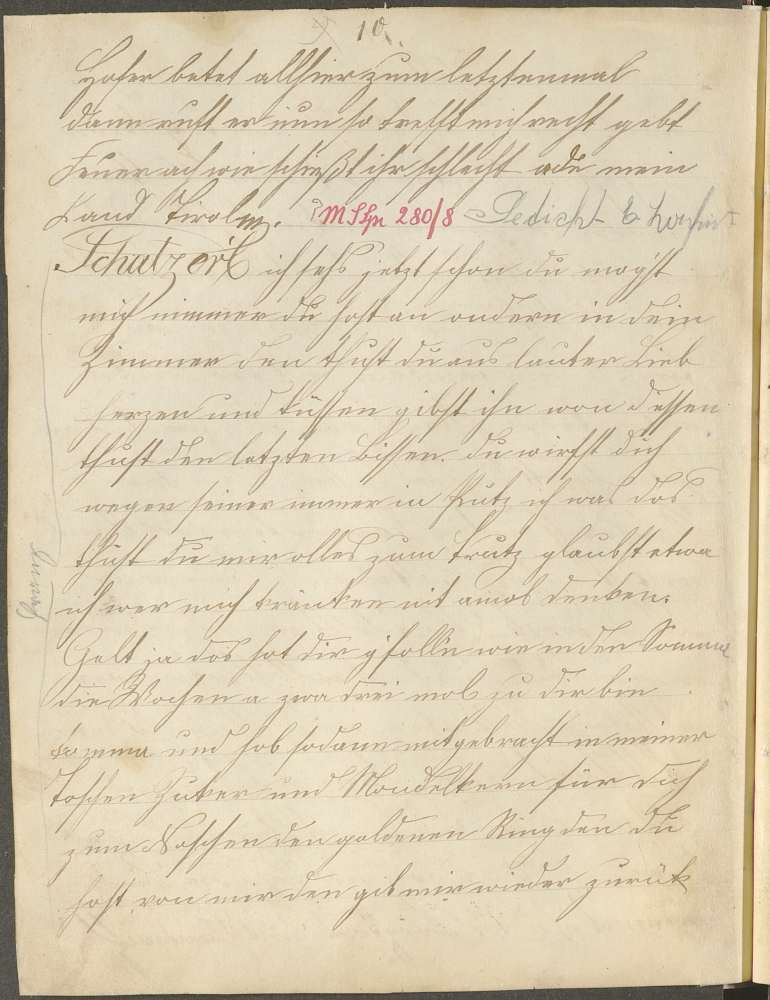 10.
Hofer betet allhier zum letztenmal
dann ruft er nun so trefft mich recht gebt
Feuer ach wie schießt ihr schlecht ade mein
Land Tirolm. 280/8 Gedicht &
Schatzerl ich sehs jetzt schon du mogst
mich nimmer du host an andern in dein
Zimmer den thust du aus lauter Lieb
herzen und küssen gibst ihn won d essen
thust den letzten Bissen. du wirfst dich
wegen seiner immer in Putz ich was dos
thust du mir olles zum Trutz glaubst etwa
ich wer mich kränken nit amol denken.
Gelt ja dos hot dir gfolln wie in den Somma
die Wochen a zwa drei mol zu dir bin
komma und hob sodann mitgebracht in meiner
Toschen Zuker und Mondelkern für dich
zum Noschen den goldenen Ring den du
host von mir den gib mir wieder zurük